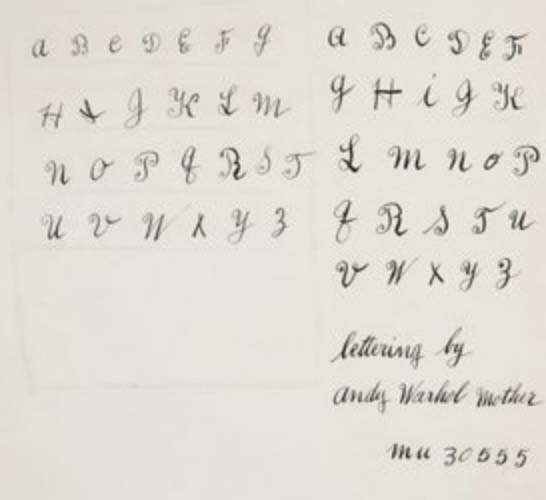 A B C D E F G
H I J K L M
N O P Q R S T
U V W X Y Z
A B C D E F
G H i J K
L M N O P
Q R S T U
V W X Y Z
lettering by
Andy Warhol mother
mu 30555